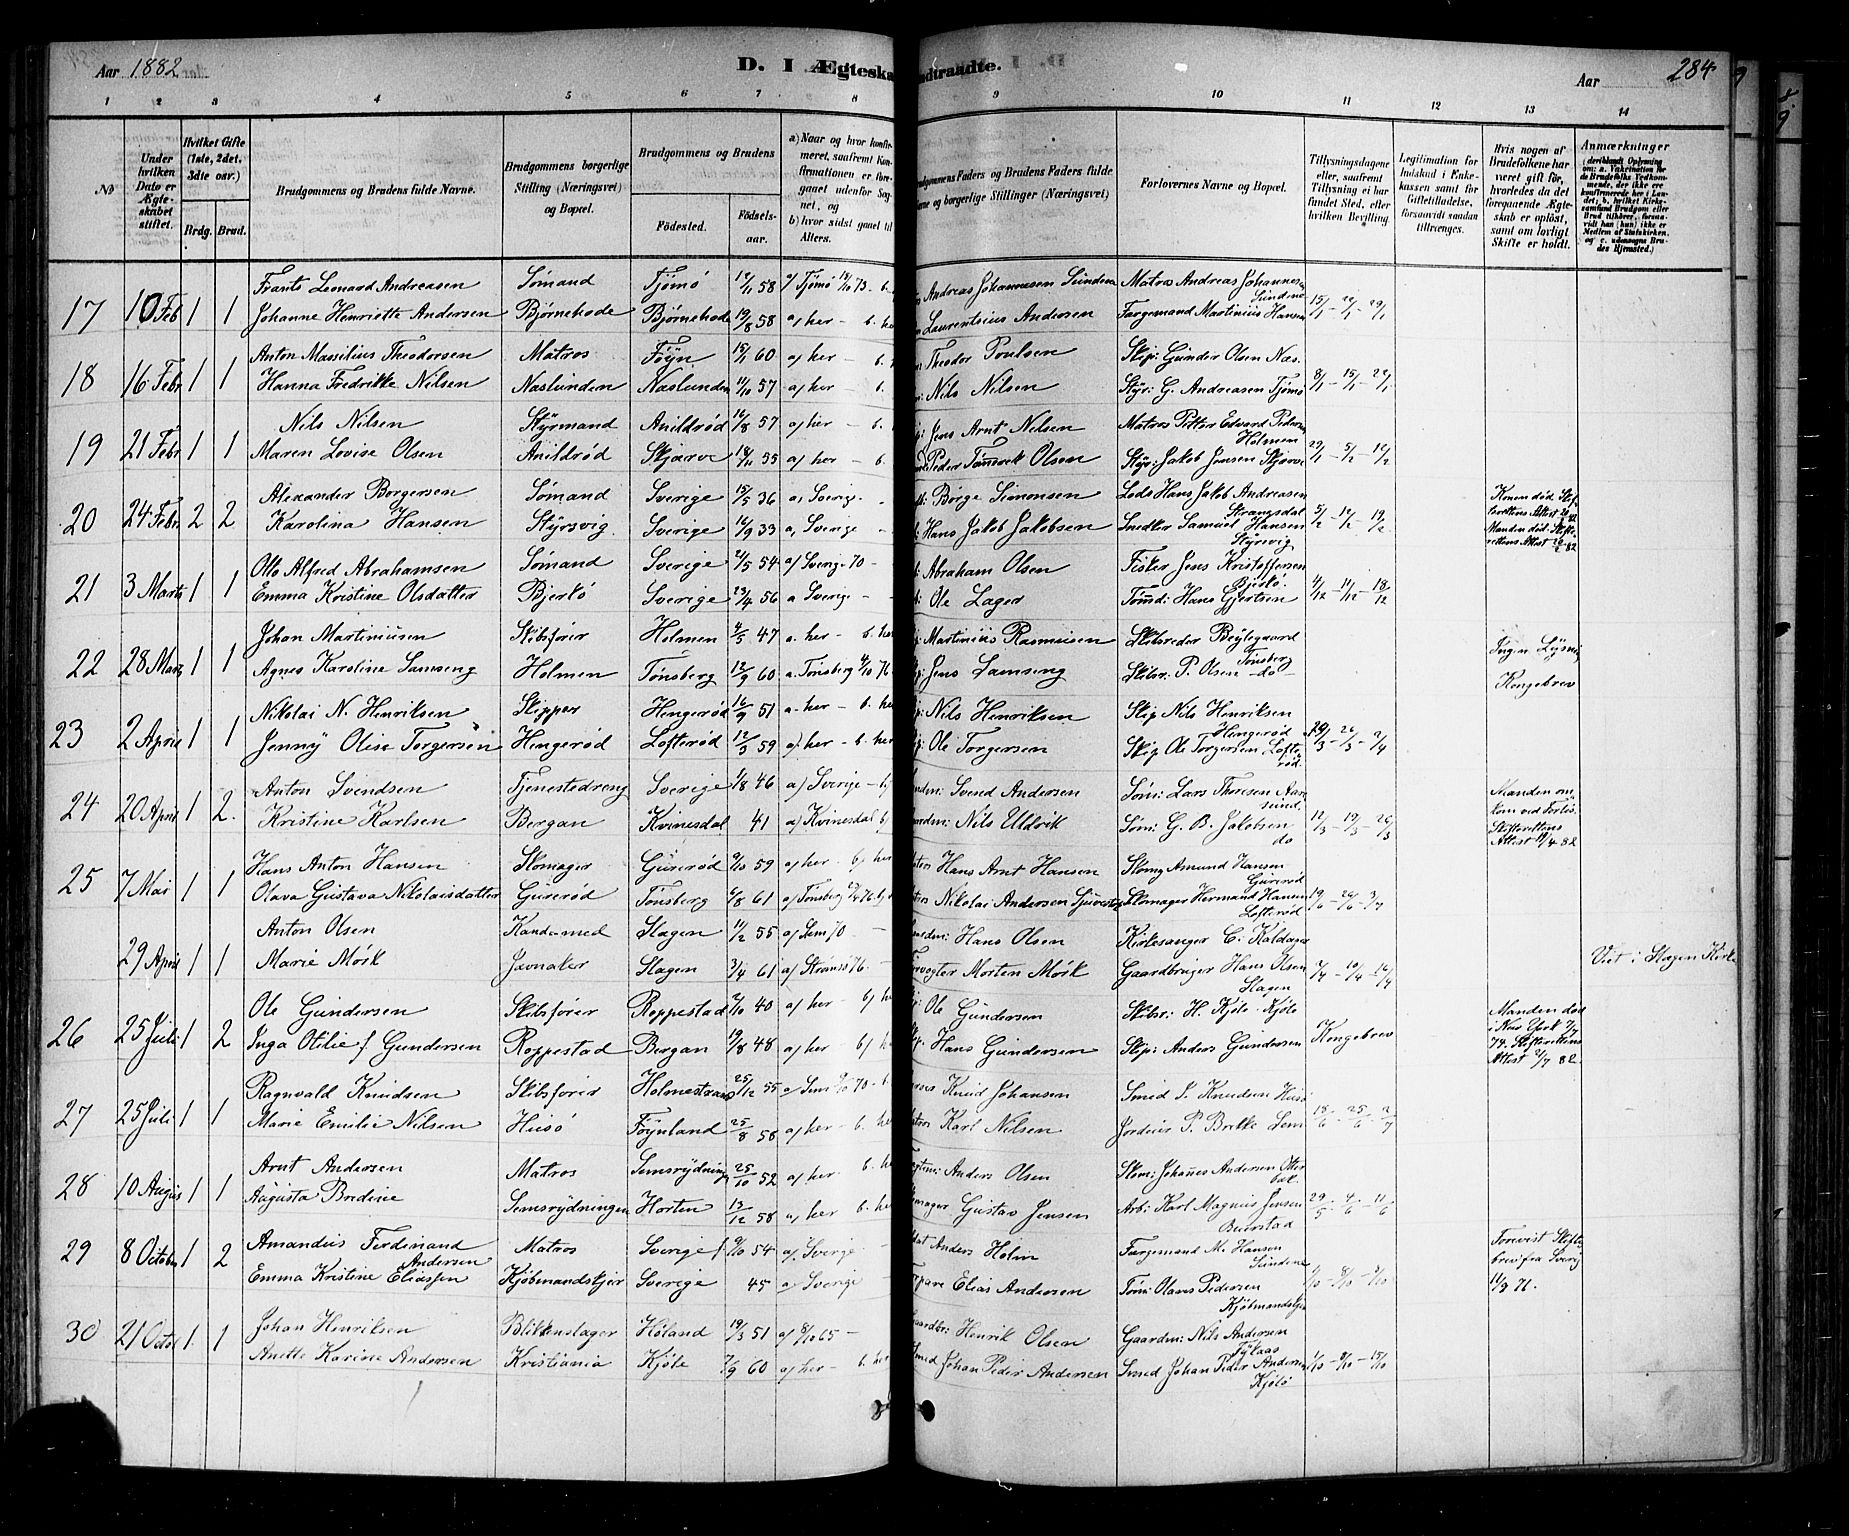 Aar 1882
D. I Ægteska
ndtraadte.
Aar
284
1 2 3 4 5 6 7 8 9 10 11 12 13 14
No
Under hvilken Dato er Ægteskabet stiftet.
Hvilket Gifte (1ste, 2det, 3dte osv.)
Brdg. Brud.
Brudgommens og Brudens fulde Navne.
Brudgommens borgerlige Stilling (Næringsvei) og Bopæl.
Brudgommens og Brudens
Fødested.
Fødselsaar.
a) Naar og hvor konfirmeret, saafremt Konfirmationen er foregaaet udenfor Sognet, og
b) hvor sidst gaaet til Alters.
Brudgommens Faders og Brudens Faders fulde
Navne og borgerlige Stillinger (Næringsvei)
Forlovernes Navne og Bopæl.
Tillysningsdagene eller, saafremt Tillysning ei har fundet Sted, efter hvilken Bevilling.
Legitimation for Indskud i Enkekassen samt for Giftetilladelse, forsaavidt saadan tiltrænges.
Hvis nogen af Brudefolkene har været gift før, hvorledes da det foregaaende Ægteskab er opløst, samt om lovligt Skifte er holdt.
Anmærkninger
17 10 Feb 1 1 Frants Leonard Andreasen Sømand Tjømø 12/11 58 a/ Tjømø 12/10 73. b. Andreas Johannesen Sundene Matros Andreas Johannesen Sundene
Johanne Henriette Andersen Bjørnehode Bjørnehode 19/8 58 a/ her - b. her Laurentsius Andersen Fargemand Martinius Hansen 15/1 - 22/1 - 29/1
18 16 Febr 1 1 Anton Massilius Theodorsen Matros Føyn 15/11 60 a/ her - b. Theodor Poulsen Skip: Gunder Olsen Næs.
Hanna Fredrikke Nilsen Naslunden Naslunden 11/10 57 a/ her b. Nils Nilsen Styr: G. Andreasen Tjømø 8/1 - 15/1 - 22/1
19 21 Febr 1 1 Nils Nilsen Styrmand Anildrød 16/8 57 a/ her b. Jens Arnt Nilsen Matros Petter Edvard Pedersen Holmen
Maren Lovise Olsen Anildrød Skjærve 18/11 55 a/ her - b. Peder Tømsvik Olsen Styr: Jakob Jensen Skjærve 29/1 - 5/2 - 12/2
20 24 Febr. 2 2 Alexander Borgersen Sømand Sverige 15/5 36 a, Sverige - Børge Simonsen Lods Hans Jakob Andreasen Strangsdal
Karolina Hansen Styrsvig Sverige 16/9 33 a, Sverige - Hans Jakob Jakobsen Snedker Samuel Hansen Styrsvig 5/2 - 12/2 - 19/2
Konen død. Skifterettens Attest Manden død. Skifterettens Attest 82
21 3 Marts 1 1 Otto Alfred Abrahamsen Sømand Sverige 2/5 54 a/ Sverige 70 - Abraham Olsen Fisker Jens Kristoffersen Bjerkø.
Emma Kristine Olsdatter Bjerkø Sverige 23/4 56 a Sverige - Ole Lager Tømd: Hans Gjertsen 4/12 - 11/12 - 18/12
22 28 Marts 1 1 Johan Martiniusen Skibsfører Holmen 4/5 47 a. her - b. her Martinius Rasmusen Skibsreder Bøylegaard Tønsberg
Agnes Karoline Lamseng Holmen Tønsberg 12/9 60 a. Tønsberg 4/10 76 Jens Lamseng Skibsr. P. Olsen do
Ingen Lysning Kongebrev
23 2 April 1 1 Nikolai N. Henriksen Skipper Hengerød 16/9 51 a. her - b. her Nils Henriksen Skip Nils Henriksen Hengerød
Jenny Olise Torgersen Hengerød Lofterød 12/3 59 a/ her - b. her Ole Torgersen Skip Ole Torgersen Lofterød. 19/3 - 26/3 - 2/4
24 20 April 1 2. Anton Svendsen Tjenestedreng Sverige 1/8 46 a) Sverige - b/ Svend Andersen Søm: Lars Thoresen Aarøsund.
Kristine Karlsen Bergan Kvinesdal 41 a/ Kvinesdal b/ Nils Uldvik Søm: G. B. Jakobsen do 12/3 - 19/3 - 26/3
Manden omkom ved Forlis. Skifterettens Attest 19/4 82
25 7 Mai 1 1 Hans Anton Hansen Slomager Gurerød 9/10 59 a/ her - b/ her Hans Arnt Hansen Slomg Amund Hansen Gurerød
Olava Gustava Nikolaisdatter Gurerød Tønsberg 6/8 61 a/ Tønsberg 76 b/ Nikolai Andersen Slomager Hermand Hansen Lofterød
29 April 1 1 Anton Olsen Kandemed Slagen 11/2 55 a/ Sem 70 - Hans Olsen Kirkesanger C. Kaldager
Marie Mørk Javnaker Slagen 3/4 61 a/ Strømsø 76. - Morten Mørk Gaardbruger Hans Olsen Slagen 7/4 - 10/4 - 16/4
Viet i Slagen Kirke
26 25 Juli 1 2 Ole Gundersen Skibsfører Roppestad 2/10 40 a/ her - b/ her Ole Gundersen Skibsr: H. Kjøle Kjøle
Inga Otilie f Gundersen Roppestad Bergan 19/8 48 a/ her b/ her Hans Gundersen Skip: Anders Gundersen Kongebrev
Manden død i New York 7/7 74. Skifterettens Attest 2/7 82.
27 25 Juli 1 1 Ragnvald Knudsen Skibsfører Holmestrand 25/12 55 a/ Sem 70 - b Knud Johansen Smed S. Knudsen Husø
Marie Emilie Nilsen Husø Føynland 25/8 58 a/ her - b. her Karl Nilsen Jordeier P. Bekke Sem 18/6 - 25/6 - 2/7
28 10 August 1 1 Arnt Andersen Matros Semsrydningen 25/10 52 a/ her b. her Anders Olsen Skom: Johannes Andersen Otterbæk.
Augusta Bredine Semsrydningen Horten 13/12 58 a/ her b. her Gustav Jensen Arb: Karl Magnus Jensen Burstad 29/5 - 4/6 - 11/6
29 8 October 1 2 Amandus Ferdinand Andersen Matros Sverige f. 9/10 54 a/. Sverige Anders Holm Fargemand M. Hansen Sundene
Emma Kristine Eliassen Kjøbmandskjær Sverige 45 a/ Sverige Elias Andersen Tøm: Olaves Pedersen Kjøbmandskjær 1/10 - 8/10 - 9/10
Forevist Skiftebrev fra Sverig 11/9 71.
30 21 Octob 1. 1 Johan Henriksen Blikkenslager Høland 19/3 51 a/ 8/10 65 - Henrik Olsen Gaardm: Nils Andersen Fylaas
Anette Karine Andersen Kristiania Kjøle 7/9 60 a/ her - b. her Smed Johan Peder Andersen Smed Johan Peder Andersen Kjøle 1/10 - 8/10 - 15/10